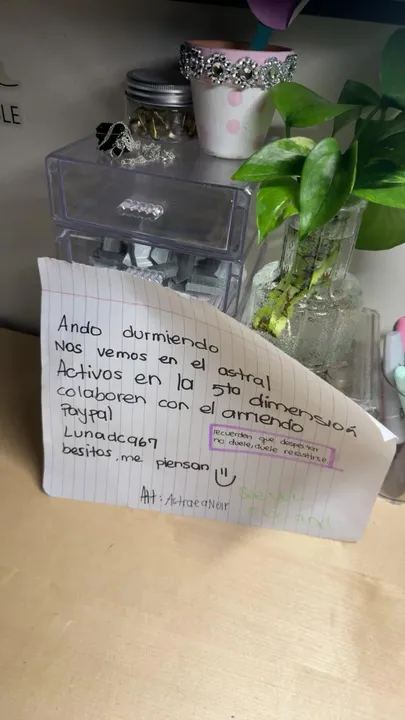 LE
Ando durmiendo
Nos vemos en el astral
Activos en la 5ta dimensión
colaboren con el arriendo
Paypal
Lunadca67
recuerden que despertar
no duele, duele resistirse
besitos, me piensan
Att: AstraeaNoir